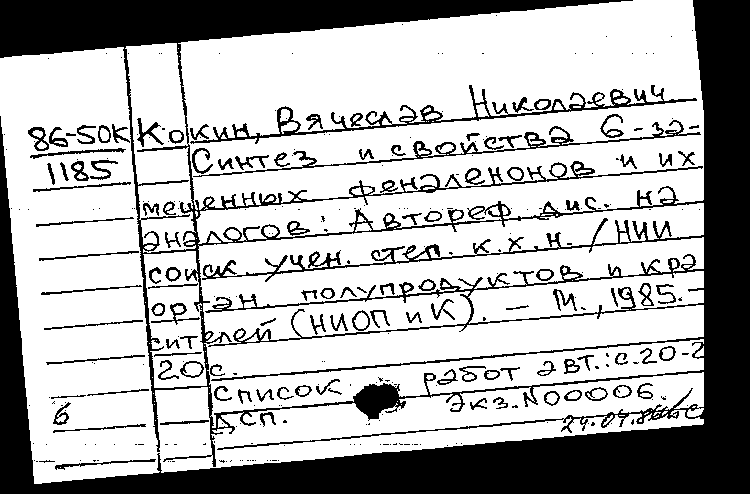 86-50К Кокин, Вячеслав Николаевич.
1185 Синтез и свойства 6-за-
мещенных феналенонов и их
аналогов: Автореф. дис. на
соиск. учен. степ. к.х.н. /НИИ
орган. полупродуктов и кра
сителей (НИОПиК). – М., 1985. –
20 с.
Список работ авт.: с.20-2
б ДСП. Экз.N00006.